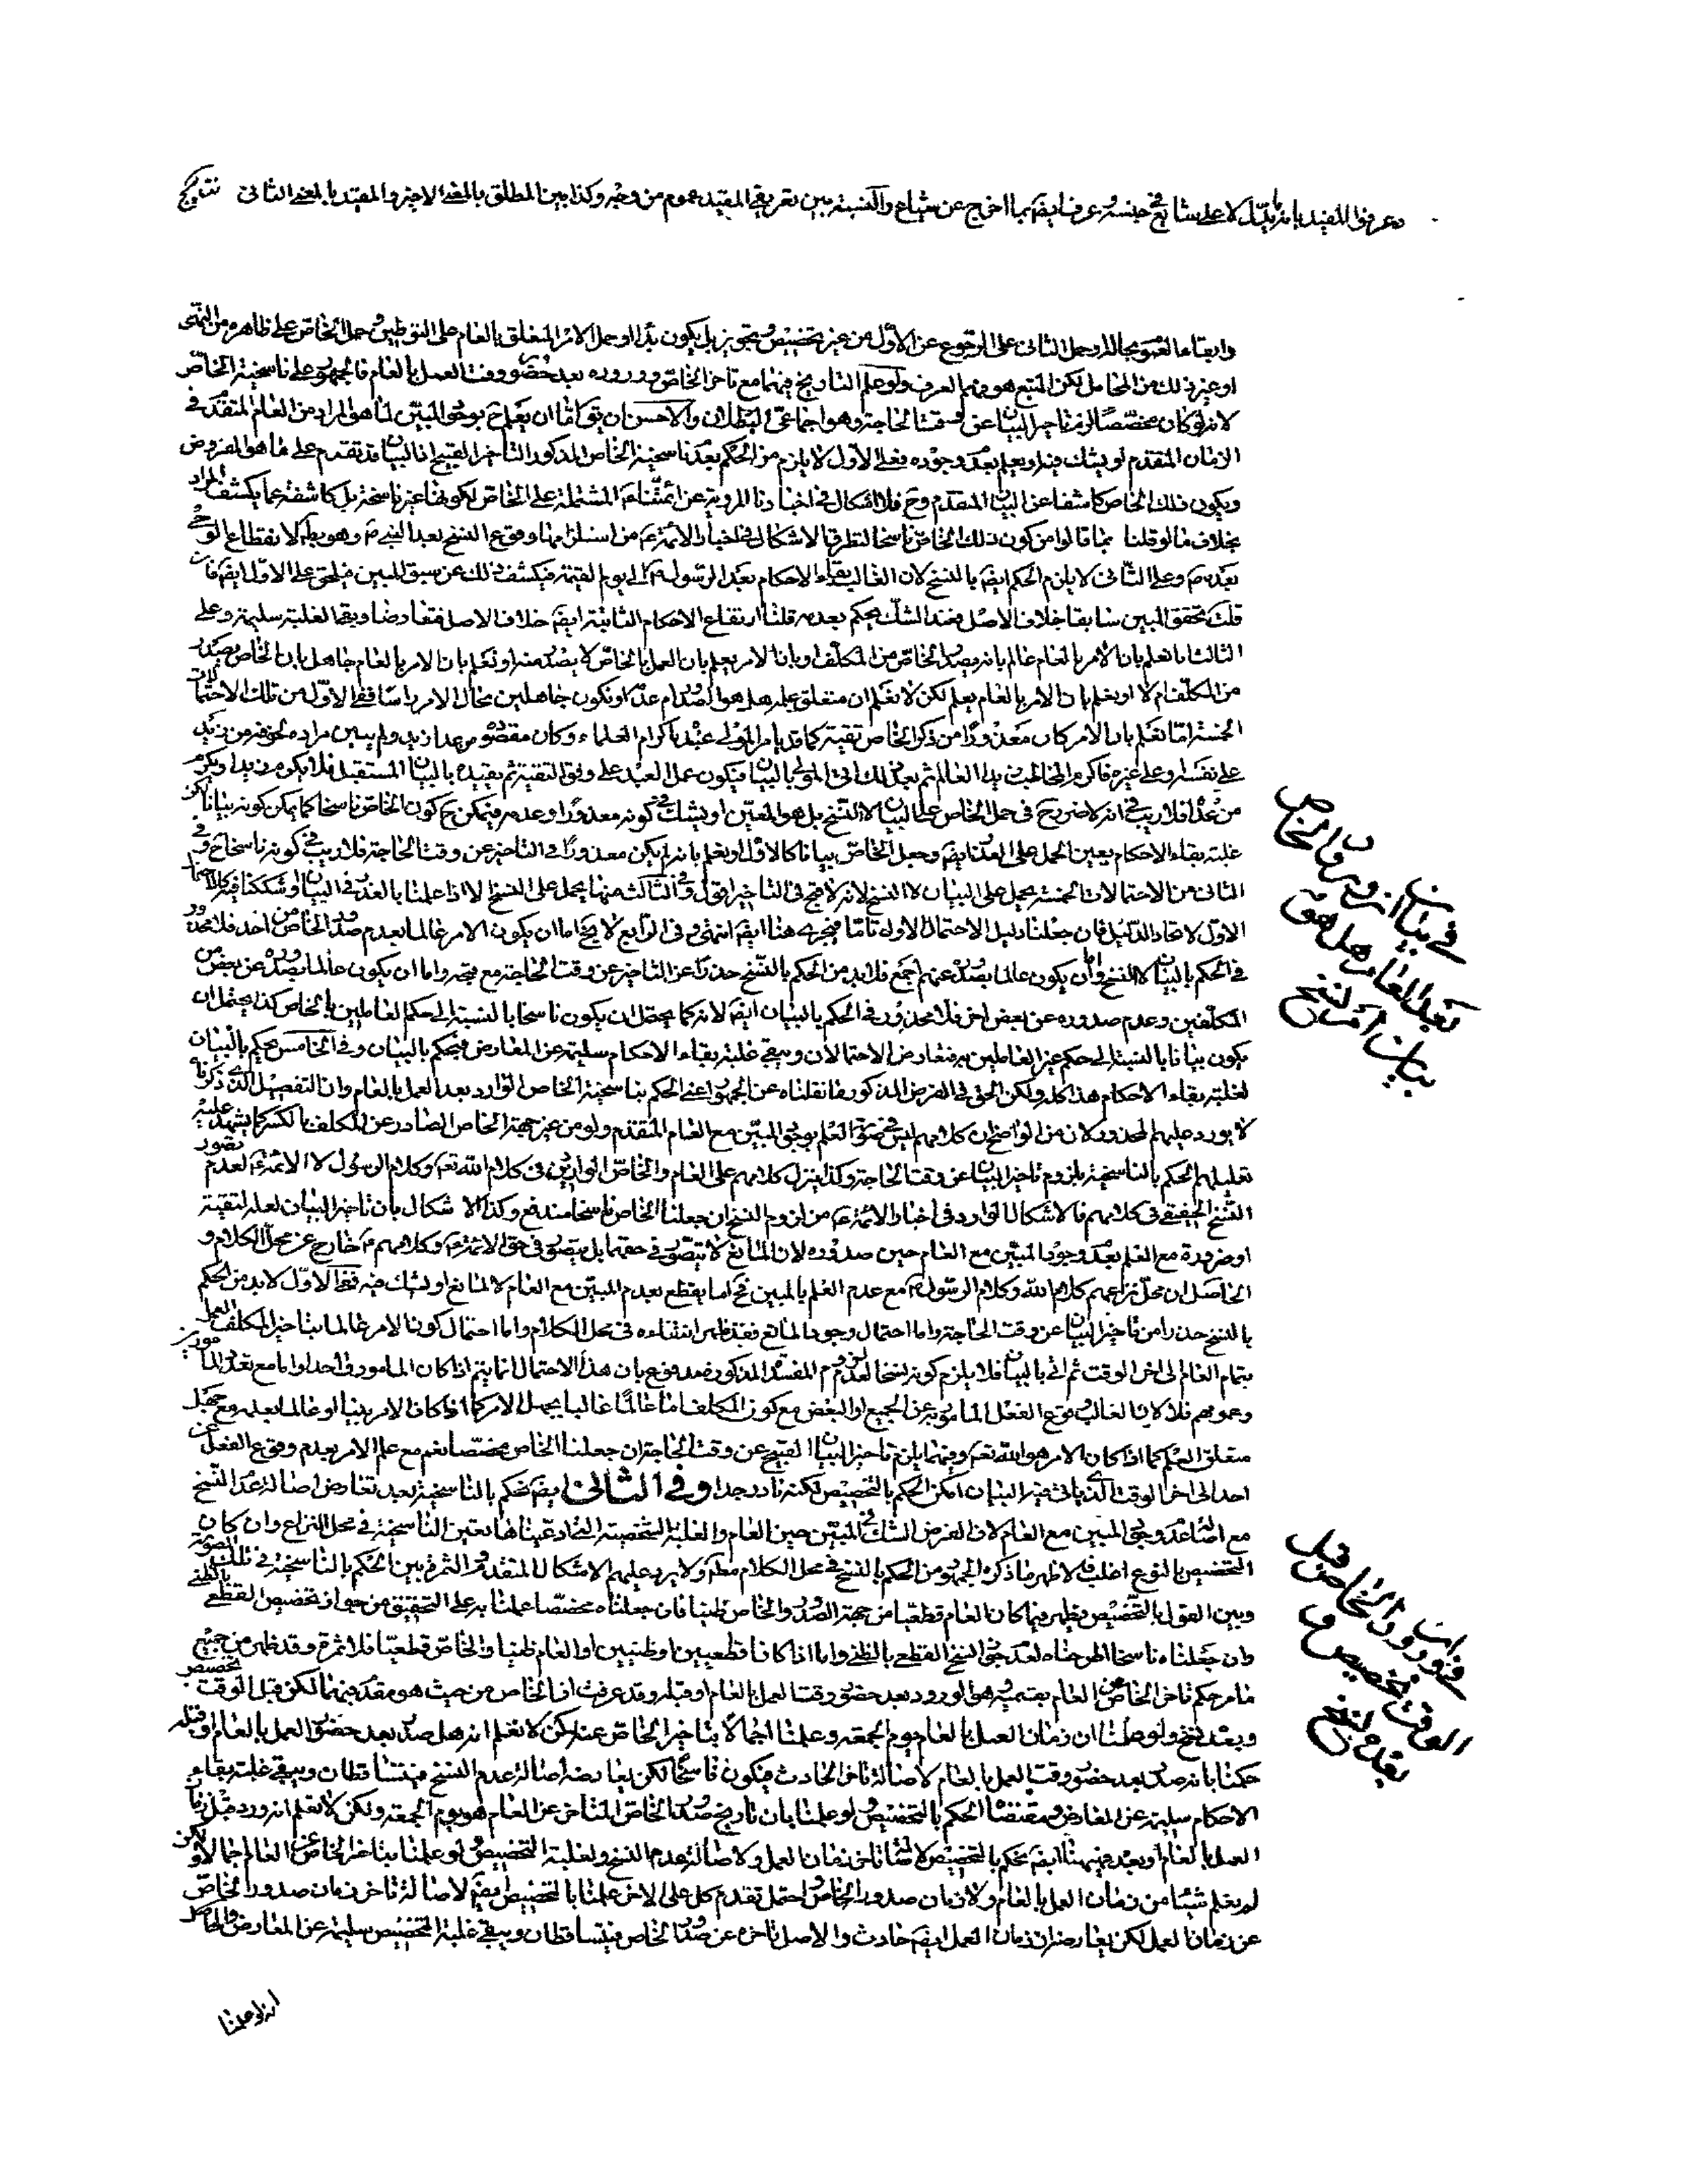 وعرفوا المقيد بانه ما يدل لا على شايع في جنسه وعرف ايضا بما اخرج عن شياع والنسبة بين تعريفي المقيد عموم من وجه وكذا بين المطلق بالمعنى الاخير والمقيد بالمعنى الثانى نتايج
وابقاء العموم بحاله او حمل الثانى على الرجوع عن الاول من غير تخصيص وتجويز بل يكون بداء او حمل الامر المتعلق بالعام على التوطين وحمل الخاص على ظاهره من
او غير ذلك من المحامل لكن المتبع هو فهم العرف ولو علم التاريخ فيهما مع تاخر الخاص ووروده بعد حضور وقت العمل بالعام فالجمهور على ناسخية الخاص
لانه لو كان مخصصا لزم تاخير البيان عن وقت الحاجة وهو اجماعي البطلان والاحسن ان يق اما ان يعلم ح بوجود المبين لما هو المراد من العام المتقدم في
الزمان المتقدم او يشك فيه او يعلم بعدم وجوده فعلى الاول لا يلزم من الحكم بعدم ناسخية الخاص المذكور التاخير القبيح اذ البيان قد تقدم على ما هو المفروض
ويكون ذلك الخاص كاشفا عن البيان المتقدم وح فلا اشكال فى اخبارنا المروية عن ائمتنا ع المشتملة على الخاص لكونها غير ناسخة بل كاشفة عما يكشف المراد
بخلاف ما لو قلنا بما قالوا من كون ذلك الخاص ناسخا لتطرق الاشكال فى اخبار الائمة ع من استلزامها وقوع النسخ بعد النبي ص وهو بط لانقطاع الوحى
بعده ص وعلى الثانى لا يلزم الحكم ايضا بالنسخ لان الغالب بقاء الاحكام بعد الرسول ص الى يوم القيمة فيكشف ذلك عن سبق المبين فيلحق على الاول ايضا فان
قلت تحقق المبين سابقا خلاف الاصل فعند الشك يحكم بعدمه قلنا ارتفاع الاحكام الثابتة ايضا خلاف الاصل فتعارضا ويبقى الغلبة سليمة وعلى
الثالث اما نعلم بان الامر بالعام عالم بانه يصدر الخاص من المكلف وبان الامر يعلم بان العمل بالخاص لا يصدر منه او نعلم بان الامر بالعام جاهل بان الخاص يصدر
من المكلف ام لا او نعلم بان الامر بالعام يعلم لكن لا نعلم ان متعلق علمه هل هو الصدور ام عدمه او نكون جاهلين بحال الامر راسا ففي الاول من تلك الاحتمالات
الخمسة اما نعلم بان الامر كان معذورا من ذكر الخاص تقية كما قد يامر المولى عبده باكرام العلماء وكان مقصوده عدا زيد ولم يبين مراده لخوفه من زيد
على نفسه او على غيره فاكرم المخاطب زيدا العالم ثم بعد ذلك اتى المولى بالبيان فيكون عمل العبد على وفق التقية ثم يقيده بالبيان المستقبل فلا يكرم زيدا ويكرم
من عداه فلا ريب في انه لا ضير ح في حمل الخاص على البيان لا النسخ بل هو المعين او يشك في كونه معذورا وعدمه فيمكن ح كون الخاص ناسخا كما يمكن كونه بيانا لكن
غلبة بقاء الاحكام يعين الحمل على العذر ايضا وجعل الخاص بيانا كالاول او نعلم بانه لم يكن معذورا في التاخير عن وقت الحاجة فلا ريب في كونه ناسخا ح وفي
الثانى من الاحتمالات الخمسة يحمل على البيان لا النسخ لانه لا قبح فى التاخير اقول وفي الثالث منها يحمل على النسخ الا اذا علمنا بالعذر في البيان او شككنا فيه كالاحتمال
الاول لاتحاد الدليل فان جعلنا دليل الاحتمال الاول تاما فيجرى هنا ايضا انتهى وفى الرابع لا يخ اما ان يكون الامر عالما بعدم صدور الخاص من احد فلا محذور
في الحكم بالبيان لا النسخ واما ان يكون عالما بصدوره عنهم اجمع فلا بد من الحكم بالنسخ حذرا عن التاخير عن وقت الحاجة مع قبحه واما ان يكون عالما بصدوره عن بعض من
المكلفين وعدم صدوره عن بعض اخر فلا محذور في الحكم بالبيان ايضا لانه كما يحتمل ان يكون ناسخا بالنسبة الى حكم العاملين بالخاص كذا يحتمل ان
يكون بيانا بالنسبة الى حكم غير العاملين به فتعارض الاحتمالان ويبقى غلبة بقاء الاحكام سليمة عن المعارض فيحكم بالبيان وفى الخامس يحكم بالبيان
لغلبة بقاء الاحكام هذا كله ولكن الحق في الفرض المذكور ما نقلناه عن الجمهور اعني الحكم بناسخية الخاص الوارد بعد العمل بالعام وان التفصيل الذى ذكرناه
لا يورد عليهم المحذور لان من الواضح ان كلامهم ليس في صورة العلم بوجود المبين مع العام المتقدم ولو من غير جهة الخاص الصادر عن المكلف بالكسر كما يشهد عليه
تعليلهم الحكم بالناسخية بلزوم تاخير البيان عن وقت الحاجة وكذا ينزل كلامهم على العام والخاص الواردين فى كلام الله تعم وكلام الرسول لا الائمة ع لعدم تصور
النسخ الحقيقي فى كلامهم فالاشكال الوارد فى اخبار الائمة ع من لزوم النسخ ان جعلنا الخاص ناسخا مندفع وكذا الاشكال بان تاخير البيان لعله لتقية
او ضرورة مع العلم بعدم وجود المبين مع العام حين صدوره لان المانع لا يتصور في حقهما بل يتصور فى حق الائمة ع وكلامهم ع خارج عن محل الكلام و
الحاصل ان محل نزاعهم كلام الله وكلام الرسول ص مع عدم العلم بالمبين فح اما يقطع بعدم المبين مع العام لا لمانع او يشك فيه فعلى الاول لا بد من الحكم
بالنسخ حذرا من تاخير البيان عن وقت الحاجة واما احتمال وجود المانع فقد ظهر انتفاءه فى محل الكلام واما احتمال كون الامر عالما بتاخير المكلف العمل
بتمام العام الى اخر الوقت ثم اتى بالبيان فلا يلزم كونه نسخا لعدم لزوم المفسدة المذكورة فمدفوع بان هذا الاحتمال انما يتم اذا كان المامور فى احدا واما مع تعدد المامورين
وعمومهم فلا لان الغالب وقوع الفعل المامور به عن الجميع او البعض مع كون المكلف اما عالما غالبا بجهل الامر كما اذا كان الامر نبيا او عالما بعلمه مع جهل
متعلق العلم كما اذا كان الامر هو الله تعم وفيهما يلزم تاخير البيان القبيح عن وقت الحاجة ان جعلنا الخاص مخصصا نعم مع علم الامر بعدم وقوع الفعل عن
احد الى اخر الوقت الذى ياتى فيه البيان امكن الحكم بالتخصيص لكنه نادر جدا وفى الثانى ايضا نحكم بالناسخية بعد تعارض اصالة عدم النسخ
مع اصالة عدم وجود المبين مع العام لان الفرض الشك في المبين حين العام والغلبة الشخصية التى ادعيناها تعين الناسخية فى محل النزاع وان كان
التخصيص بالنوع اغلب فالاظهر ما ذكره الجمهور من الحكم بالنسخ في محل الكلام مط ولا يرد عليهم الاشكال المتقدم والثمرة بين الحكم بالناسخية فى تلك الصورة
وبين القول بالتخصيص يظهر فيما كان العام قطعيا من جهة الصدور والخاص ظنيا فان جعلناه مخصصا عملنا به على التحقيق من جواز تخصيص القطعي بالظني
وان جعلناه ناسخا طرحناه لعدم جواز نسخ القطعي بالظني واما اذا كانا قطعيين او ظنيين او العام ظنيا والخاص قطعيا فلا ثمرة وقد ظهر من جميع
ما مر حكم تاخر الخاص عن العام بقسميه هو الورود بعد حضور وقت العمل بالعام او قبله وقد عرفت ان الخاص من حيث هو مقدم فيهما لكن قبل الوقت تخصيص
وبعده نسخ ولو علمنا ان زمان العمل بالعام يوم الجمعة وعلمنا اجمالا بتاخير الخاص عنه لكن لا نعلم انه هل صدر بعد حضور العمل بالعام او قبله
حكمنا بانه صدر بعد حضور وقت العمل بالعام لاصالة تاخر الحادث فيكون ناسخا لكن يعارضه اصالة عدم النسخ فيتساقطان ويبقى غلبة بقاء
الاحكام سليمة عن المعارض ومقتضاها الحكم بالتخصيص ولو علمنا بان تاريخ صدور الخاص المتاخر عن العام هو يوم الجمعة ولكن لا نعلم انه ورد قبل زمان
العمل بالعام او بعده فيهما ايضا يحكم بالتخصيص لاصالة تاخر زمان العمل ولاصالة عدم النسخ ولغلبة التخصيص ولو علمنا بتاخر الخاص عن العام اجمالا ولكن
لم يعلم شيئا من زمان العمل بالعام ولا زمان صدور الخاص واحتمل تقدم كل على الاخر علمنا بالتخصيص ايضا لاصالة تاخر زمان صدور الخاص
عن زمان العمل لكن يعارضه ان زمان العمل ايضا حادث والاصل تاخره عن صدور الخاص فيتساقطان ويبقى غلبة التخصيص سليمة عن المعارض والحاصل
انه لو علمنا
في بيان ان ورود الخاص
بعد العام هل هو
بيان ام نسخ
في ان ورود الخاص قبل
الوقت تخصيص و
بعده نسخ